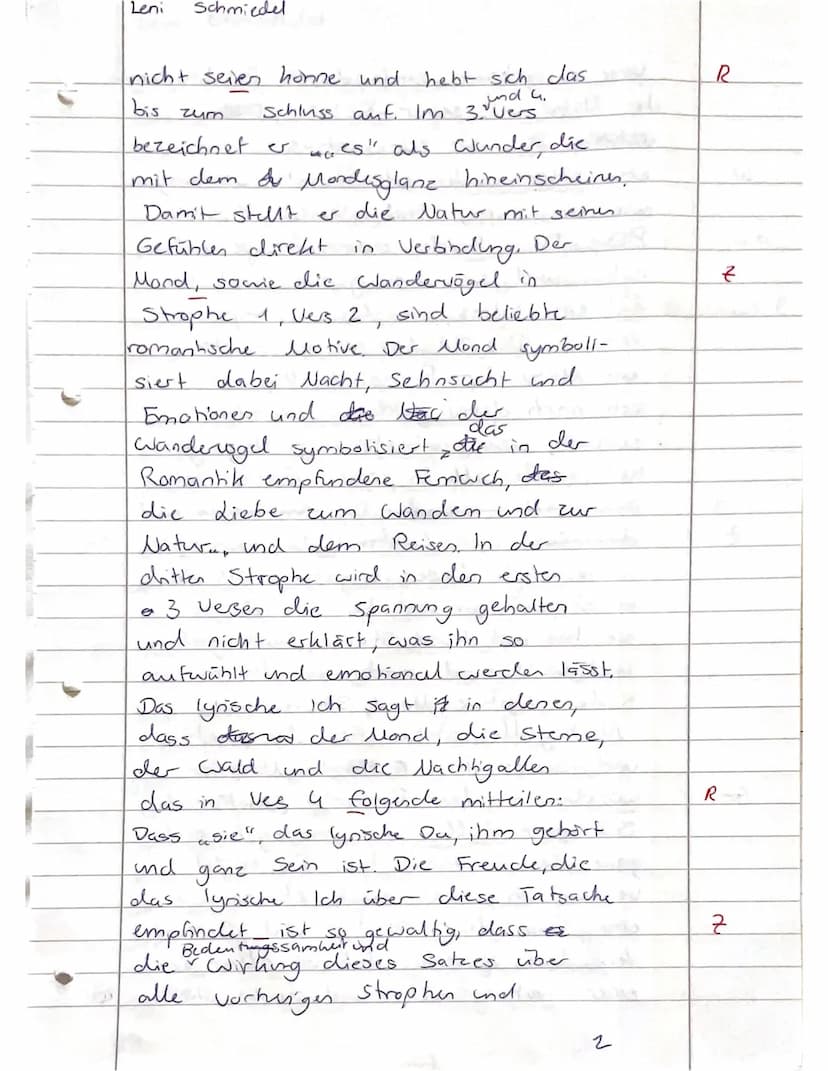 Leni Schmiedel
nicht seien könne und hebt sich das R
bis zum Schluss auf. Im 3. und 4. Vers
bezeichnet er „es" als Wunder, die
mit dem Mondesglanz hineinscheinen.
Damit stellt er die Natur mit seinen
Gefühlen direkt in Verbindung. Der
Mond, sowie die Wandervögel in Z
Strophe 1, Vers 2, sind beliebte
romantische Motive. Der Mond symboli-
siert dabei Nacht, Sehnsucht und
Emotionen und der
Wandervogel symbolisiert das in der
Romantik empfindene Fernweh,
die Liebe zum Wandern und zur
Natur, und dem Reisen. In der
dritten Strophe wird in den ersten
3 Versen die Spannung gehalten
und nicht erklärt, was ihn so
aufwühlt und emotional werden lässt.
Das lyrische Ich sagt in denen,
dass der Mond, die Sterne,
der Wald und die Nachtigallen
das in Ves 4 folgende mitteilen: R
Dass „sie", das lyrische Du, ihm gehört
und ganz Sein ist. Die Freude, die
das lyrische Ich über diese Tatsache
empfindet ist so gewaltig, dass Z
die Bedeutungssamkeit und Wirkung dieses Satzes über
alle vorherigen Strophen und
2